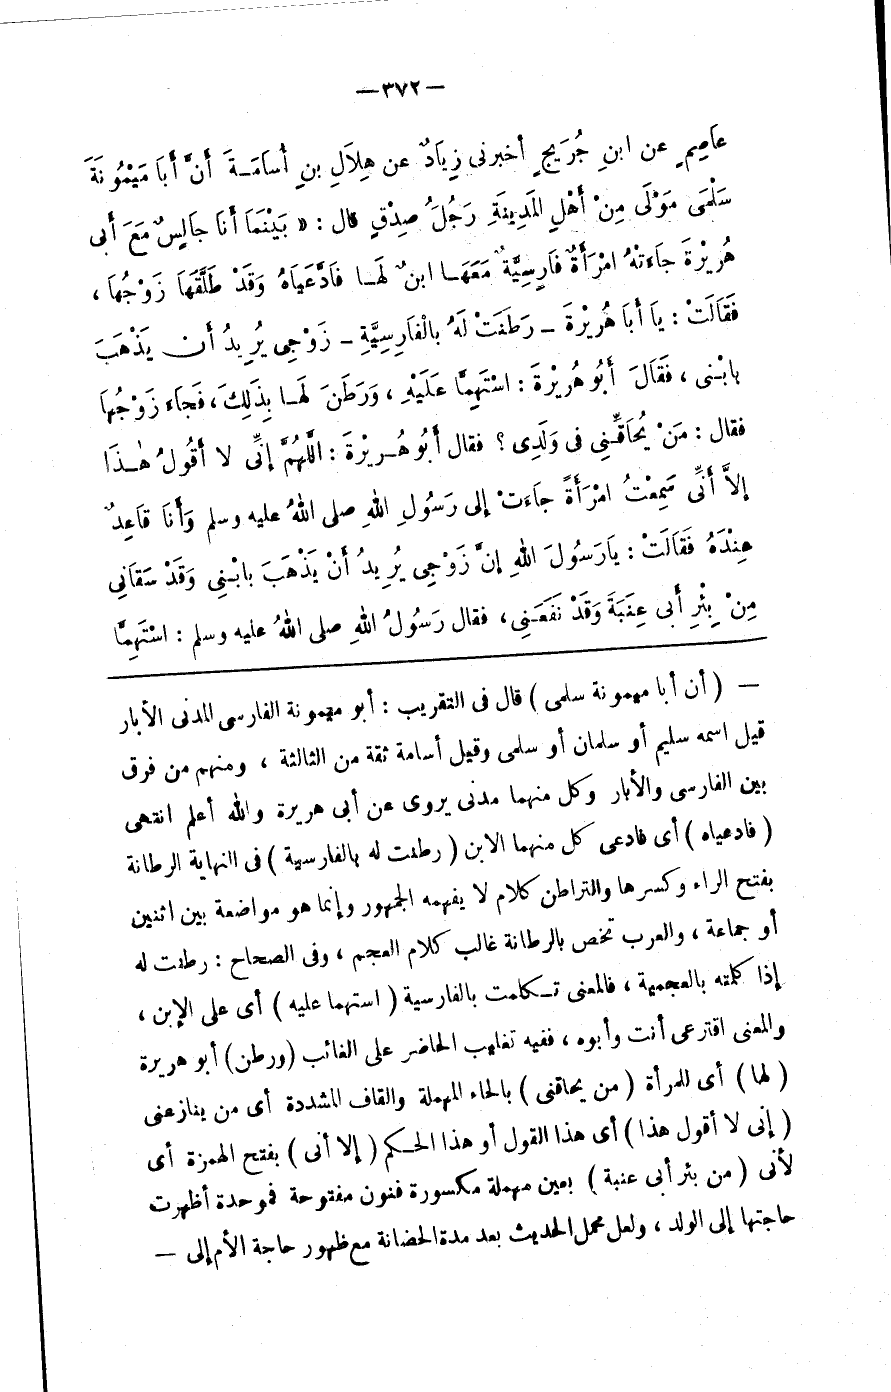 —٣٧٢—
عَاصِمٍ عن ابنِ جُرَيجٍ أخبرنى زِيَادٌ عن هِلَالِ بنِ أُسَامَـةَ أَنَّ أَبَا مَيْمُونَةَ
سَلْمَى مَوْلَى مِنْ أَهْلِ المَدِينَةِ رَجُلُ صِدْقٍ قال : « بَيْنَمَا أَنَا جَالِسٌ مَعَ أَبِى
هُرَيْرَةَ جَاءَتْهُ امْرَأَةٌ فَارِسِيَّةٌ مَعَهَـا ابنٌ لَهَـا فَادَّعَيَاهُ وَقَدْ طَلَّقَهَا زَوْجُهَا ،
فَقَالَتْ : يَا أَبَا هُرَيْرَةَ ــ رَطَنَتْ لَهُ بالْفَارِسِيَّةِ ــ زَوْجِى يُرِيدُ أَن يَذْهَبَ
بِابْـنِى ، فَقَالَ أَبُو هُرَيْرَةَ : اسْتَهِمَا عَلَيْهِ ، وَرَطَنَ لَهَـا بِذَلِكَ ، فَجَاءَ زَوْجُهَا
فقال : مَنْ يُحَاقُّـنِى فى وَلَدِى ؟ فقال أَبُو هُـرَيْرَةَ : اللَّهُمَّ إِنِّى لا أَقُولُ هٰـذَا
إِلاَّ أَنِّى سَمِعْتُ امْرَأَةً جَاءَتْ إلى رَسُولِ اللهِ صلى اللهُ عليه وسلم وَأَنَا قَاعِدٌ
عِنْدَهُ فَقَالَتْ : يارَسُولَ اللهِ إِنَّ زَوْجِى يُرِيدُ أَنْ يَذْهَبَ بابْـنِى وَقَدْ سَقَانِى
مِنْ بِئْرِ أَبى عِنَبَةَ وَقَدْ نَفَعَـنِى ، فقال رَسُولُ اللهِ صلى اللهُ عليه وسلم : اسْتَهِمَا
— ( أن أبا ميمونة سلمى ) قال فى التقريب : أبو ميمونة الفارسى المدنى الأبار
قيل اسمه سليم أو سلمان أو سلمى وقيل أسامة ثقة من الثالثة ، ومنهم من فرق
بين الفارسى والأبار وكل منهما مدنى يروى عن أبى هريرة والله أعلم انتهى
( فادعياه ) أى فادعى كل منهما الابن ( رطنت له بالفارسية ) فى النهاية الرطانة
بفتح الراء وكسرها والتراطن كلام لا يفهمه الجمهور وإنما هو مواضعة بين اثنين
أو جماعة ، والعرب تخص بالرطانة غالب كلام العجم ، وفى الصحاح : رطنت له
إذا كلمته بالعجمية ، فالمعنى تـكلمت بالفارسية ( استهما عليه ) أى على الإبن ،
والمعنى اقترعى أنت وأبوه ، ففيه تغليب الحاضر على الغائب (ورطن) أبو هريرة
( لها ) أى للمرأة ( من يحاقنى ) بالحاء المهملة والقاف المشددة أى من ينازعنى
( إنى لا أقول هذا ) أى هذا القول أو هذا الحـكم ( إلا أنى ) بفتح الهمزة أى
لأنى ( من بئر أبى عنبة ) بعين مهملة مكسورة فنون مفتوحة فموحدة أظهرت
حاجتها إلى الولد ، ولعل محمل الحديث بعد مدة الحضانة مع ظهور حاجة الأم إلى —